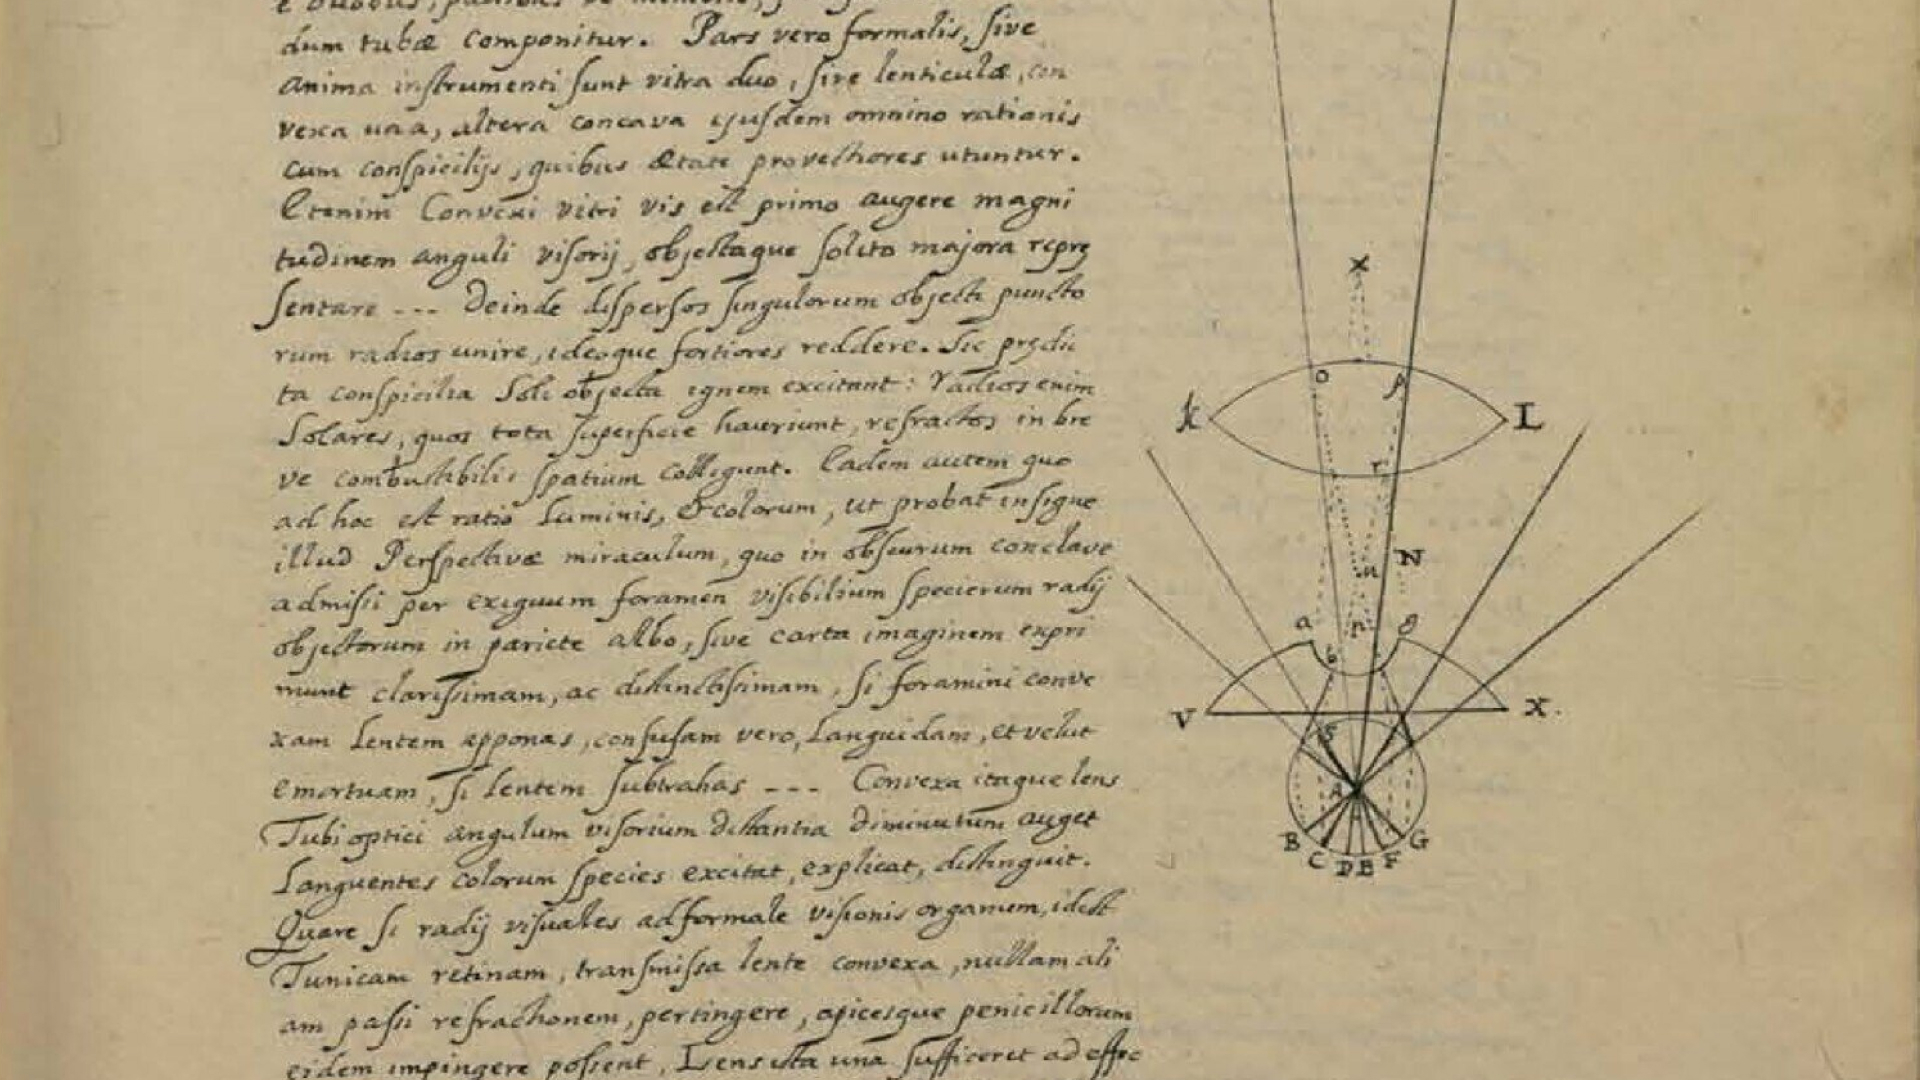 dum tubæ componitur. Pars vero formalis, sive
anima instrumenti sunt vitra duo, sive lenticulæ, con
vexa una, altera concava ejusdem omnino rationis
cum conspicilijs, quibus ætate provectiores utuntur.
Etenim Convexi vitri vis est primo augere magni
tudinem anguli visorij, objectaque solito majora repre
sentare --- Deinde dispersos singulorum objecti puncto
rum radios unire, ideoque fortiores reddere. Sic prędic
ta conspicilia Soli objecta ignem excitant: radios enim
Solares, quos tota superficie hauriunt, refractos in bre
ve combustibilis spatium colligunt. Eadem autem quo
ad hoc est ratio Luminis, & colorum, ut probat insigne
illud Perspectivæ miraculum, quo in obscurum conclave
admissi per exiguum foramen visibilium specierum radij
objectorum in pariete albo, sive carta imaginem expri
munt clarissimam, ac distinctissimam, si foramini conve
xam Lentem apponas, confusam vero, Languidam, et velut
emortuam, si Lentem subtrahas --- Convexa itaque lens
Tubi optici angulum visorium distantia diminutum auget
Languentes colorum species excitat, explicat, distinguit.
Quare si radij visuales ad formale visionis organum, idest
Tunicam retinam, transmissa lente convexa, nullam ali
am passi refractionem, pertingere, apicesque penicillorum
eidem impingere possent, Lens ista una sufficeret ad effec
X
o p
K L
r
N
n
a n g
b
V X.
S
A
B G
C D E F